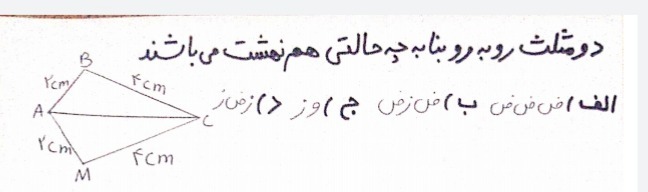 دو مثلث روبه رو بنا به چه حالتی هم نهشت می باشند
الف) ض ض ض ب) ض ز ض ج) و ز د) ز ض ز
B
۲cm
۴cm
A
C
۲cm
۴cm
M